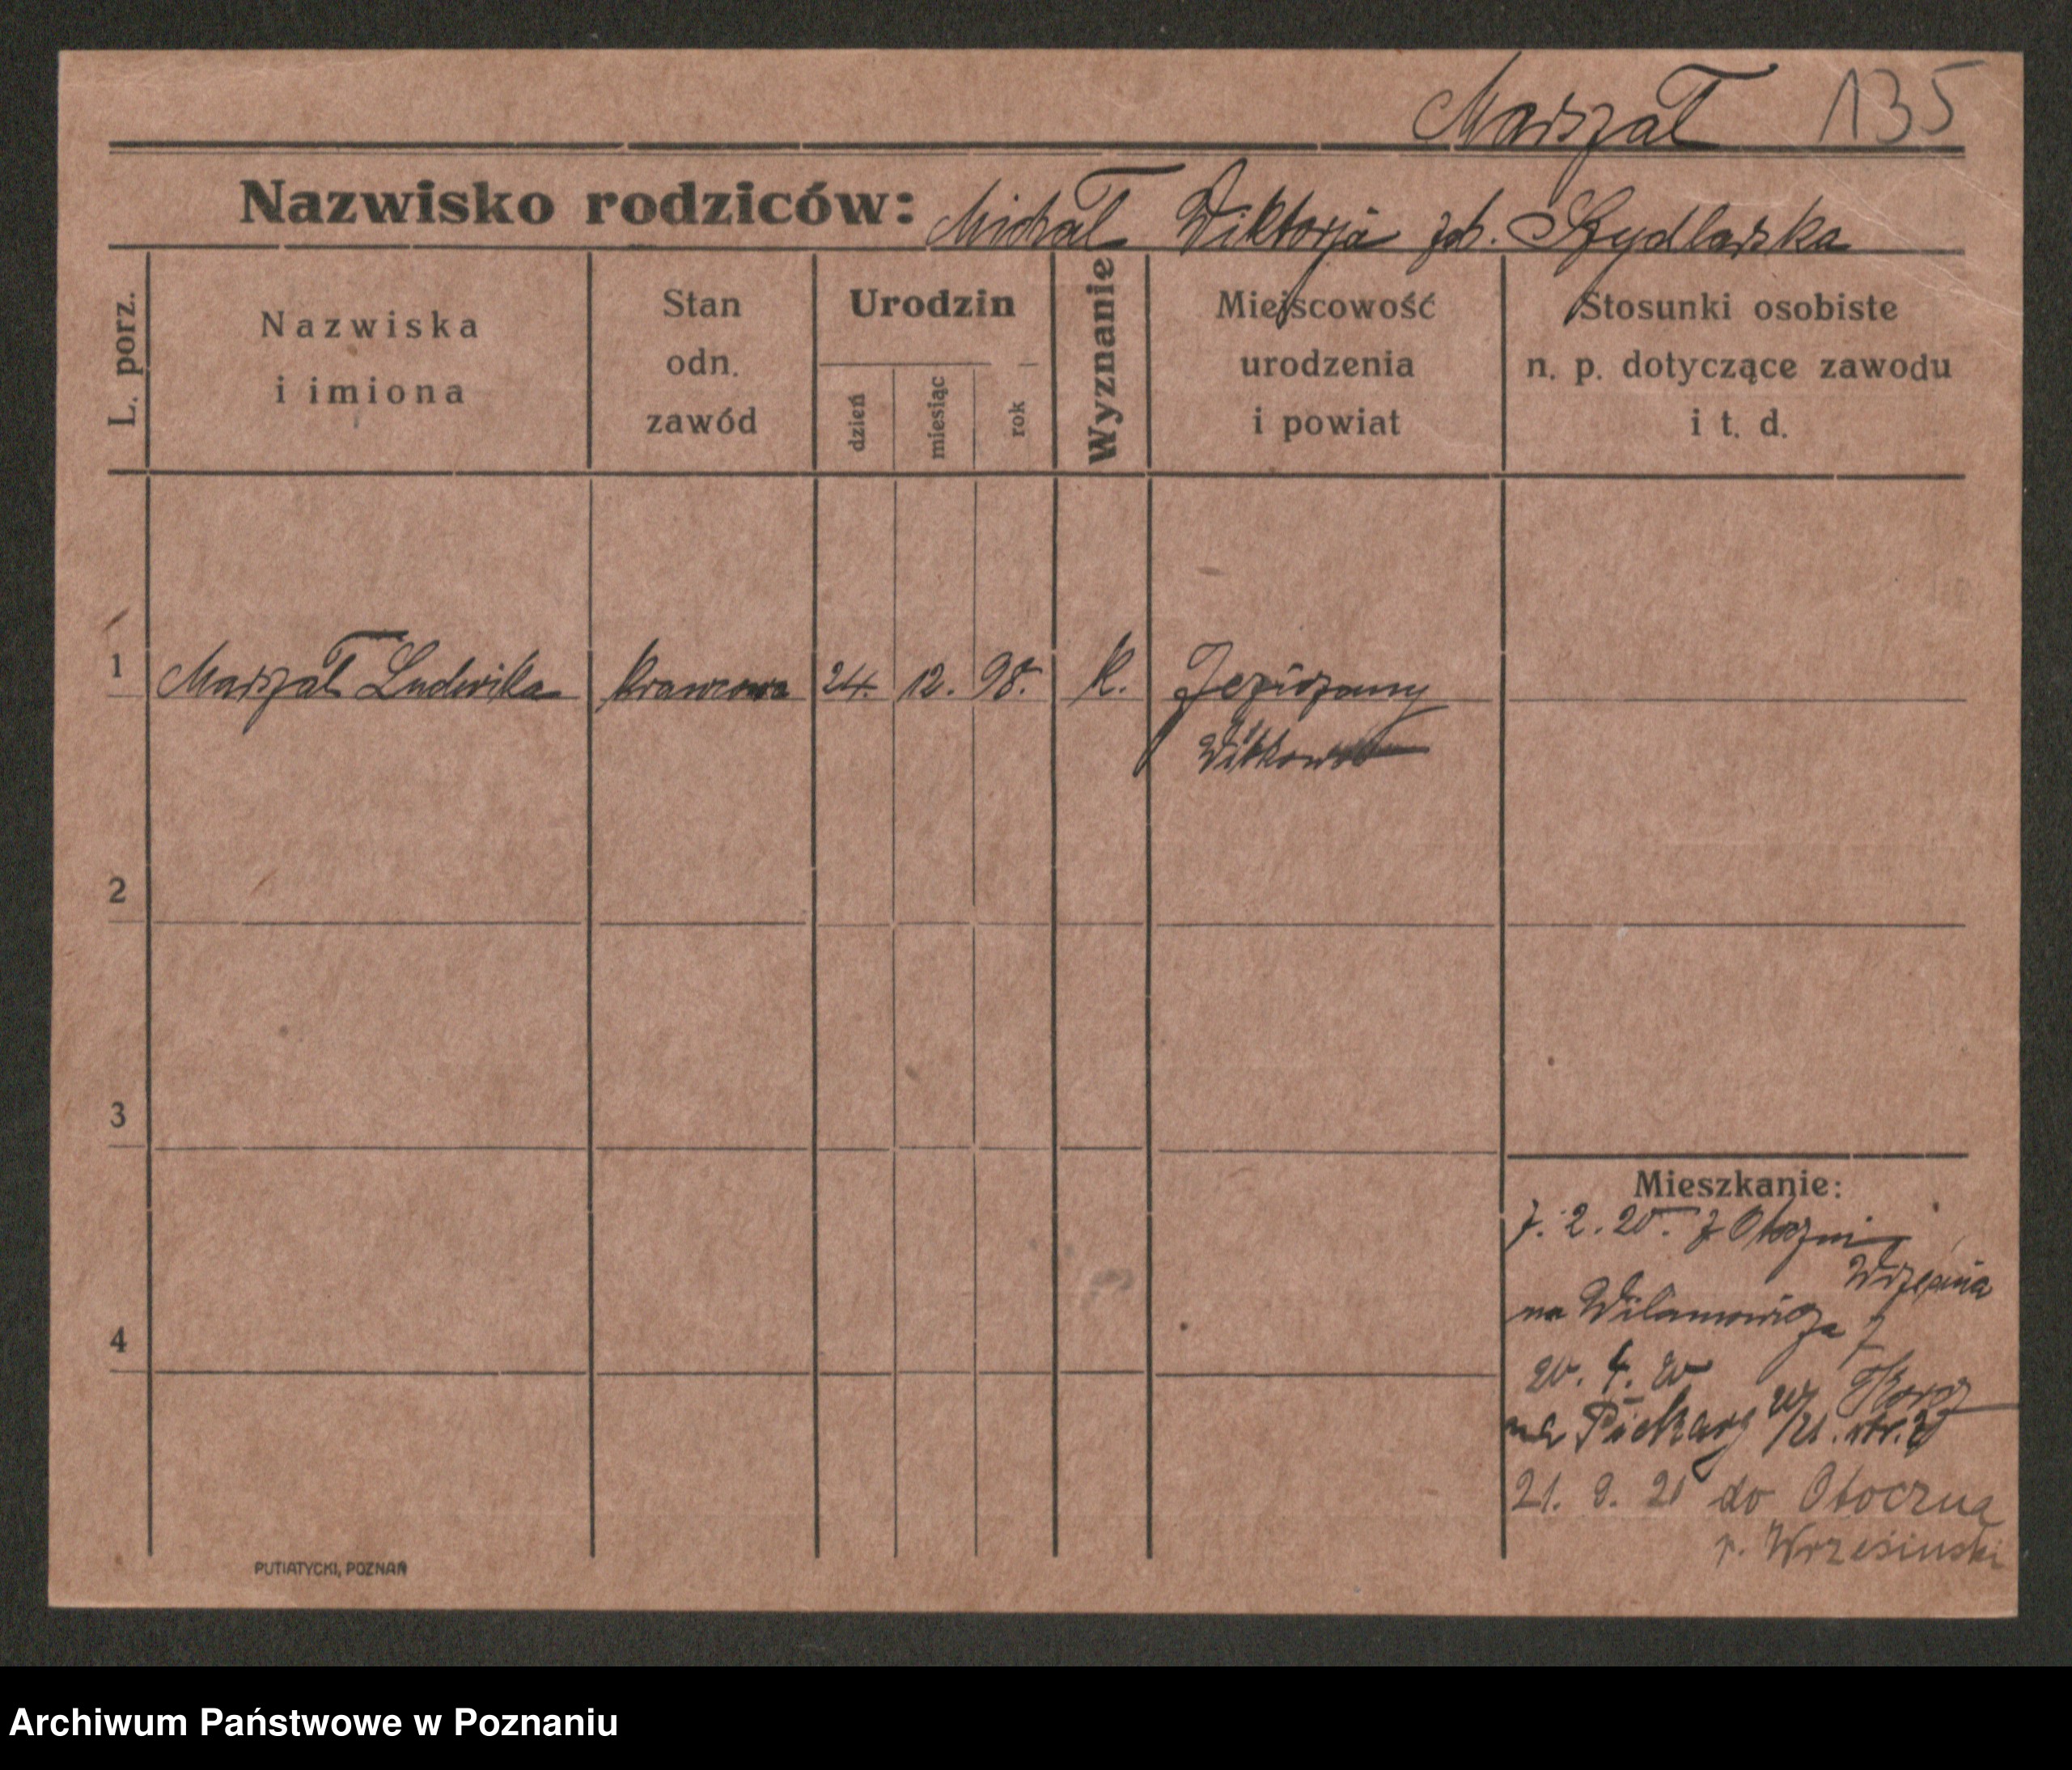 Marszał 135
Nazwisko rodziców: Michał Wiktorja Szydlarska
L. porz.
Nazwiska
i imiona
Stan
odn.
zawód
Urodzin
dzień
miesiąc
rok
Wyznanie
Miejscowość
urodzenia
i powiat
Stosunki osobiste
n. p. dotyczące zawodu
i t. d.
1 Marszał Ludwika krawcowa 24. 12. 98. k.
Witkowo
2
3
4
Mieszkanie:
7. 2. 20. z
Września
na 7
20. 4. 20
na Piekary
21. 9. 21 do Otoczna
p. Wrzesiński
PUTIATYCKI, POZNAŃ
Archiwum Państwowe w Poznaniu